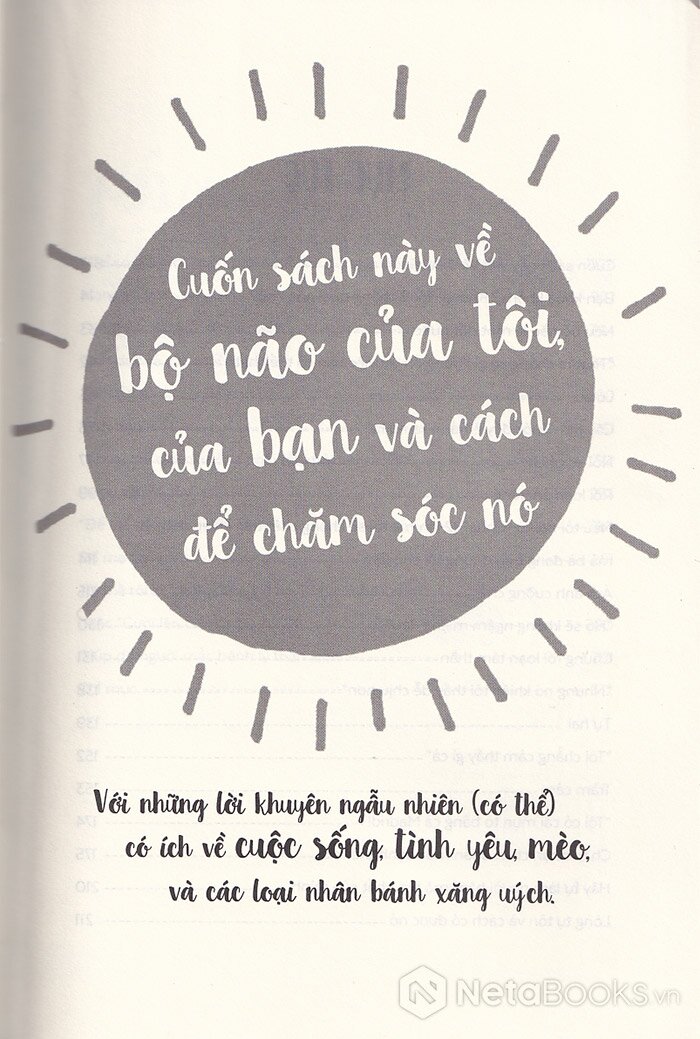 Cuốn sách này về
bộ não của tôi,
của bạn và cách
để chăm sóc nó
Với những lời khuyên ngẫu nhiên (có thể)
có ích về cuộc sống, tình yêu, mèo,
và các loại nhân bánh xăng uých.
NetaBooks.vn